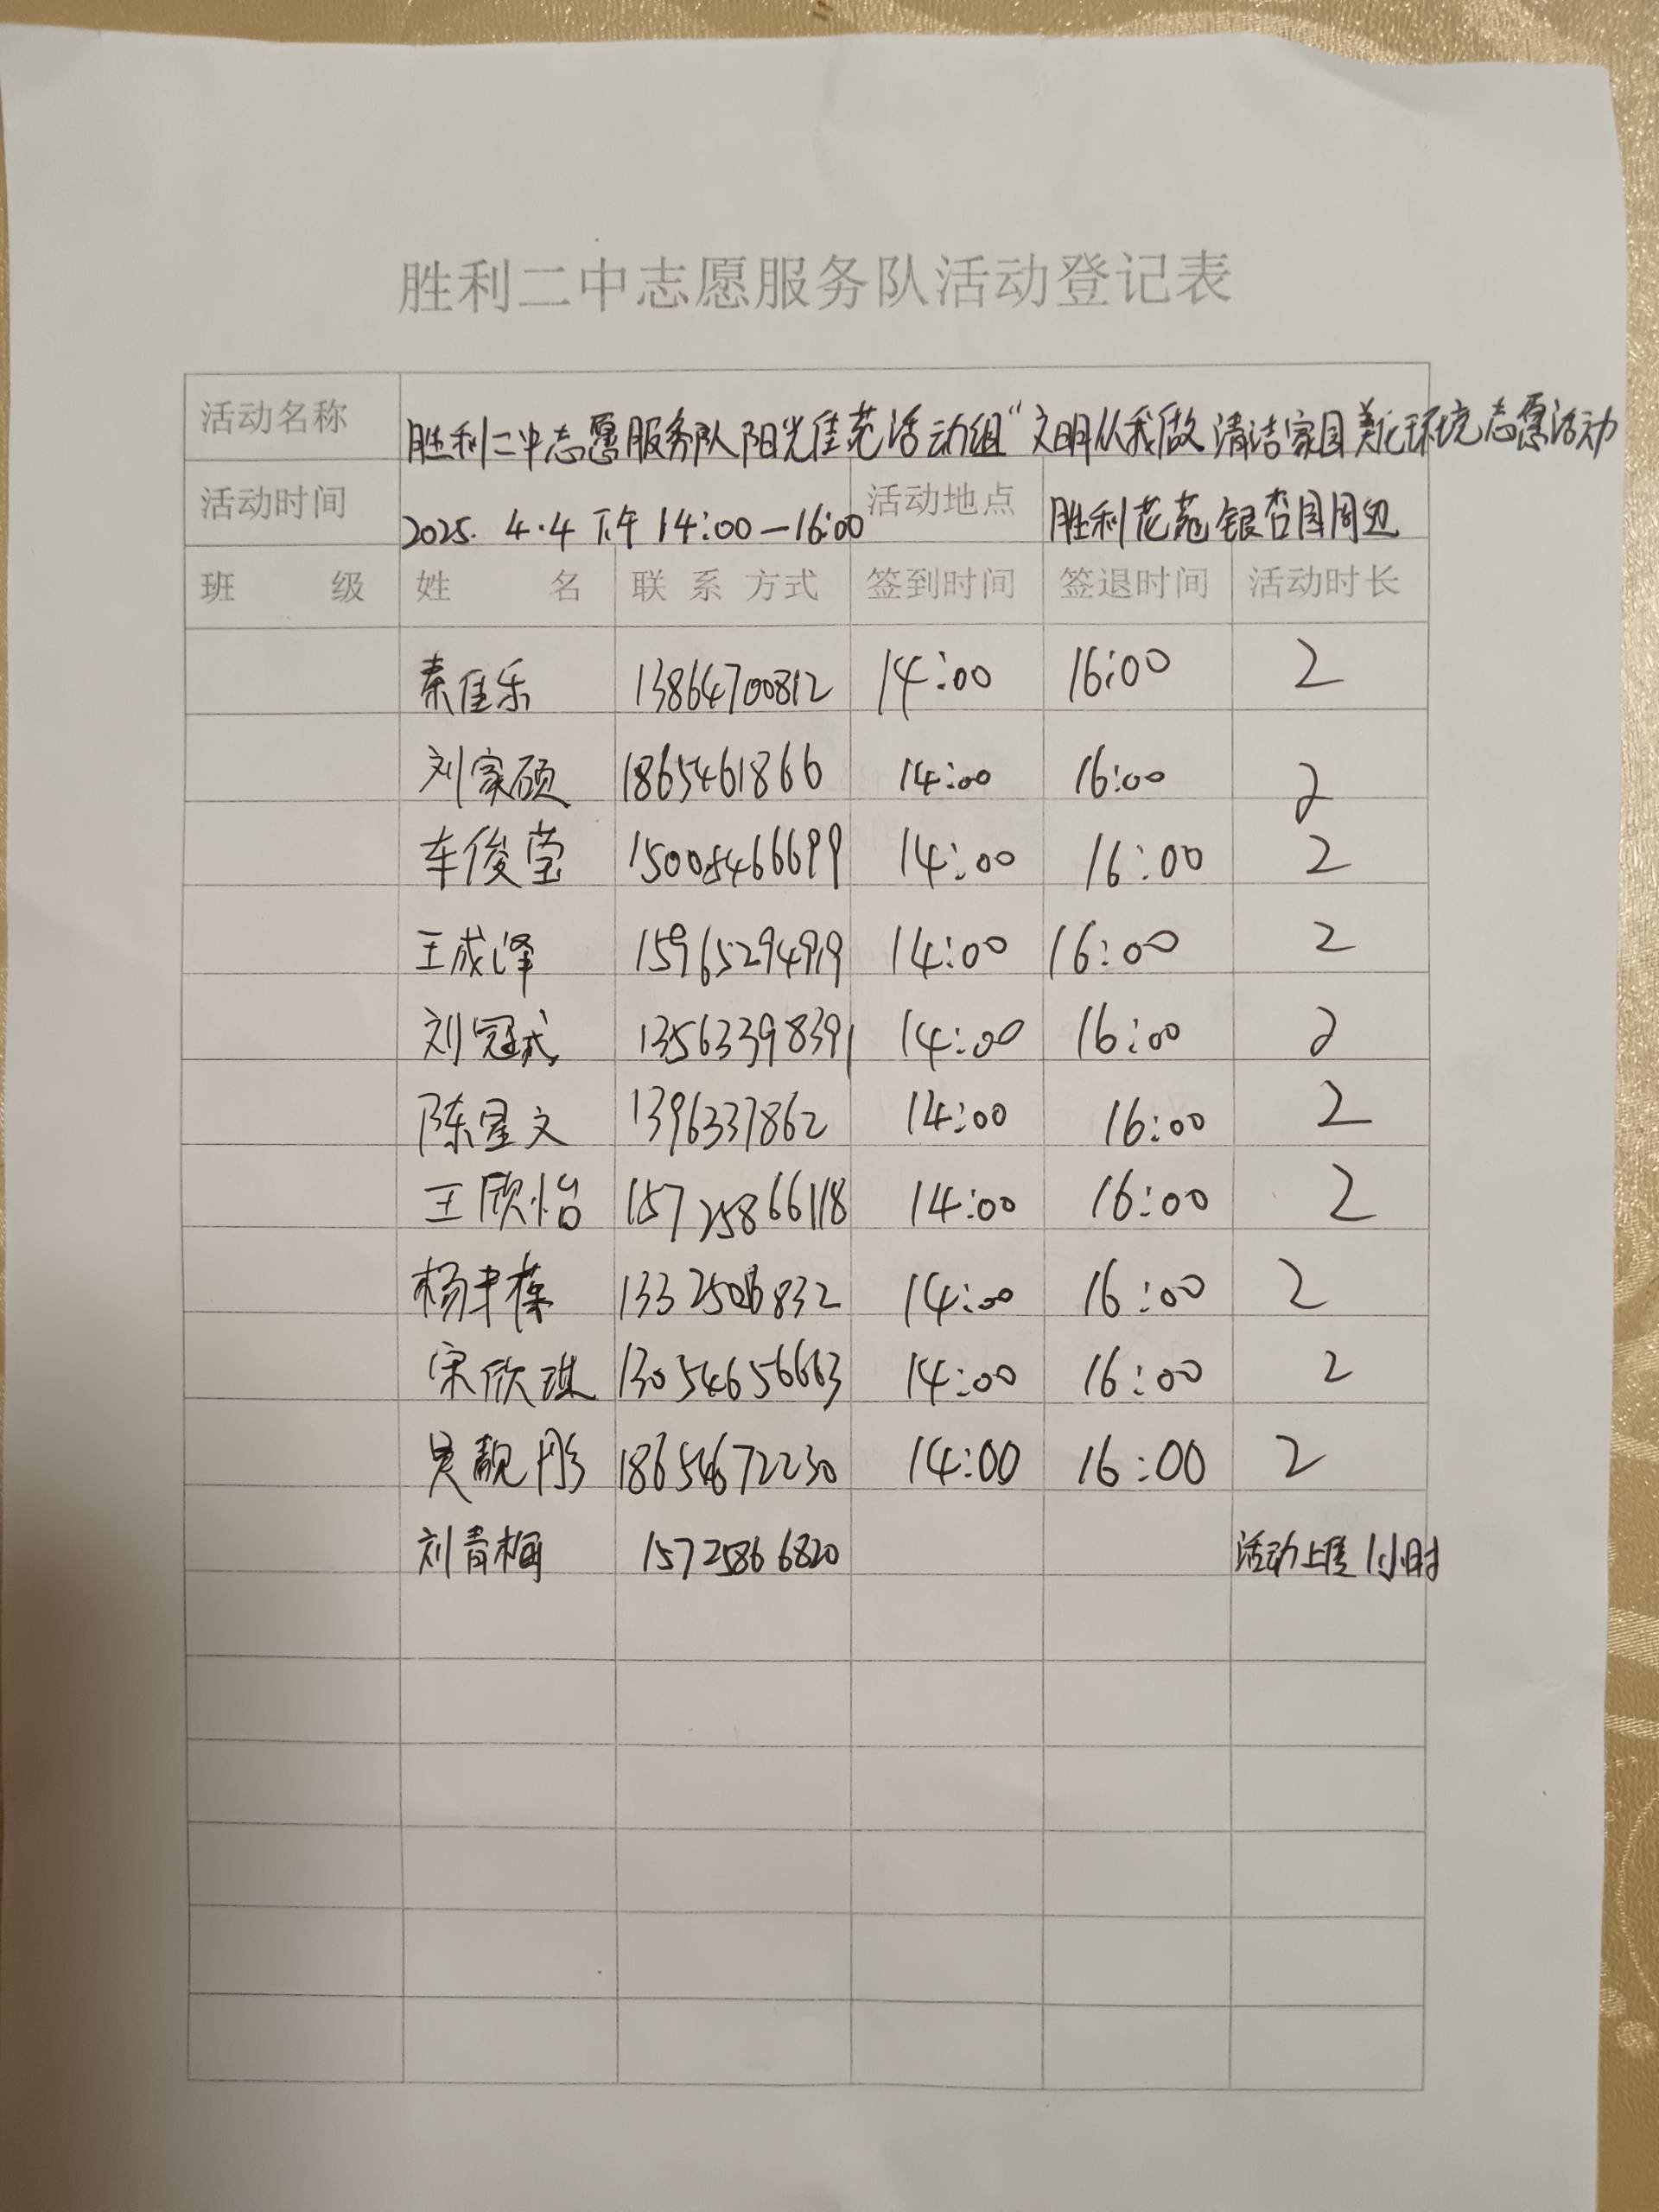 胜利二中志愿服务队活动登记表
活动名称 胜利二中志愿服务队阳光佳苑活动组“文明从我做 清洁家园美化环境志愿活动
活动时间 2025. 4.4 下午 14:00—16:00 活动地点 胜利花苑银杏园周边
班 级 姓 名 联 系 方式 签到时间 签退时间 活动时长
秦佳乐 13864700812 14:00 16:00 2
刘家硕 1865461866 14:00 16:00 2
车俊莹 15005466699 14:00 16:00 2
王成泽 15965294919 14:00 16:00 2
刘冠成 13563398391 14:00 16:00 2
陈星文 1396337862 14:00 16:00 2
王欣怡 15725866118 14:00 16:00 2
14:00 16:00 2
宋欣琪 13054656663 14:00 16:00 2
吴靓彤 18654672230 14:00 16:00 2
刘青桐 15725866820 活动上传1小时